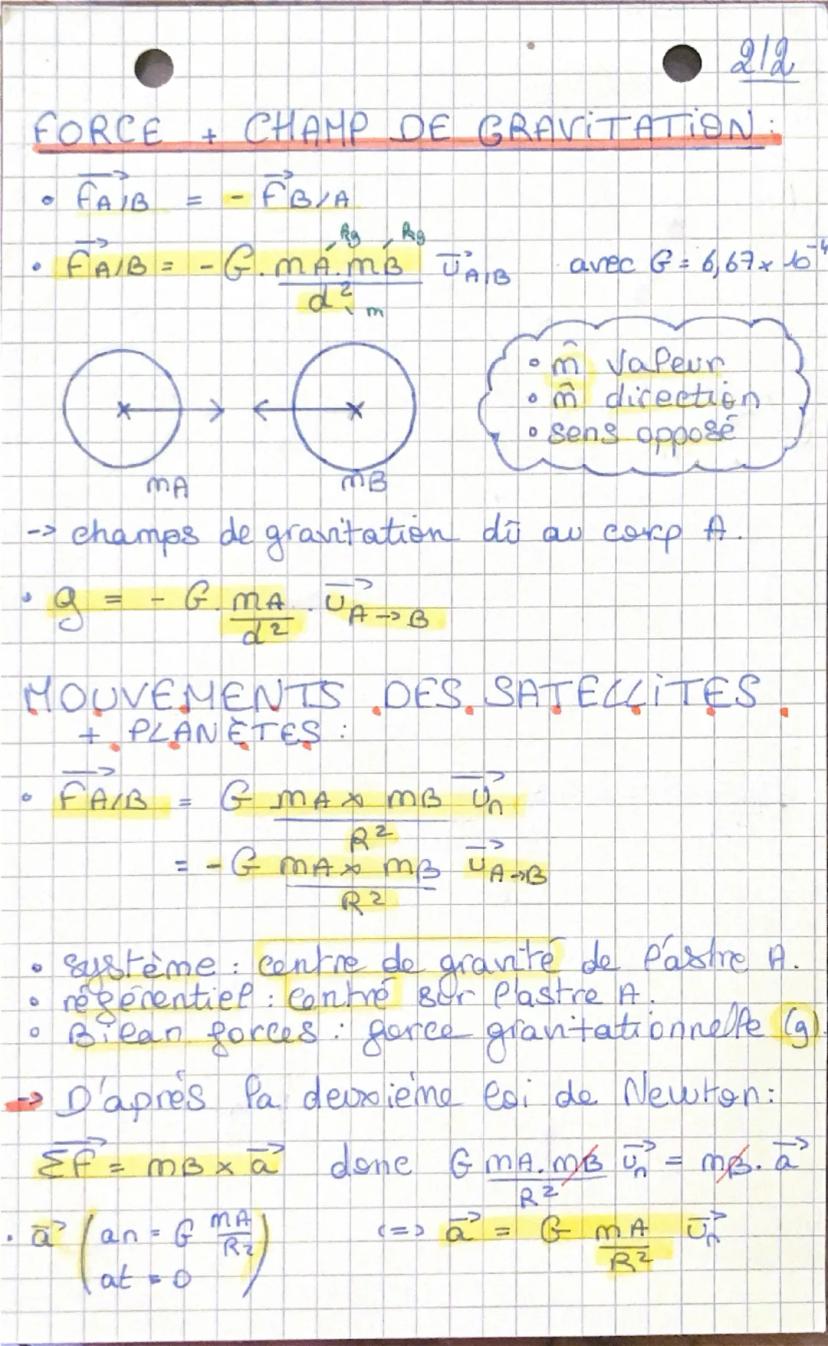 2/2
FORCE + CHAMP DE GRAVITATION :
• F⃗A/B = - F⃗B/A
• F⃗A/B = - G . mA . mB / d² u⃗A/B avec G = 6,67 × 10
kg kg
m
• m̂ valeur
• m̂ direction
• sens opposé
mA mB
-> champs de gravitation dû au corp A.
• g = - G . mA / d² . u⃗A->B
MOUVEMENTS DES SATELLITES
+ PLANÈTES :
• F⃗A/B = G mA × mB / R² u⃗n
= - G mA × mB / R² u⃗A->B
• système : centre de gravité de l'astre A.
• référentiel : centré sur l'astre A.
• Bilan forces : force gravitationnelle (g)
-> D'après la deuxième loi de Newton :
ΣF⃗ = mB × a⃗ donc G mA . mB / R² u⃗n = mB . a⃗
• a⃗ ( an = G mA / R² <=> a⃗ = G mA / R² u⃗n
at = 0 )